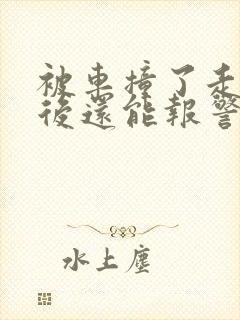 被車撞了走
後還能報警
水上塵